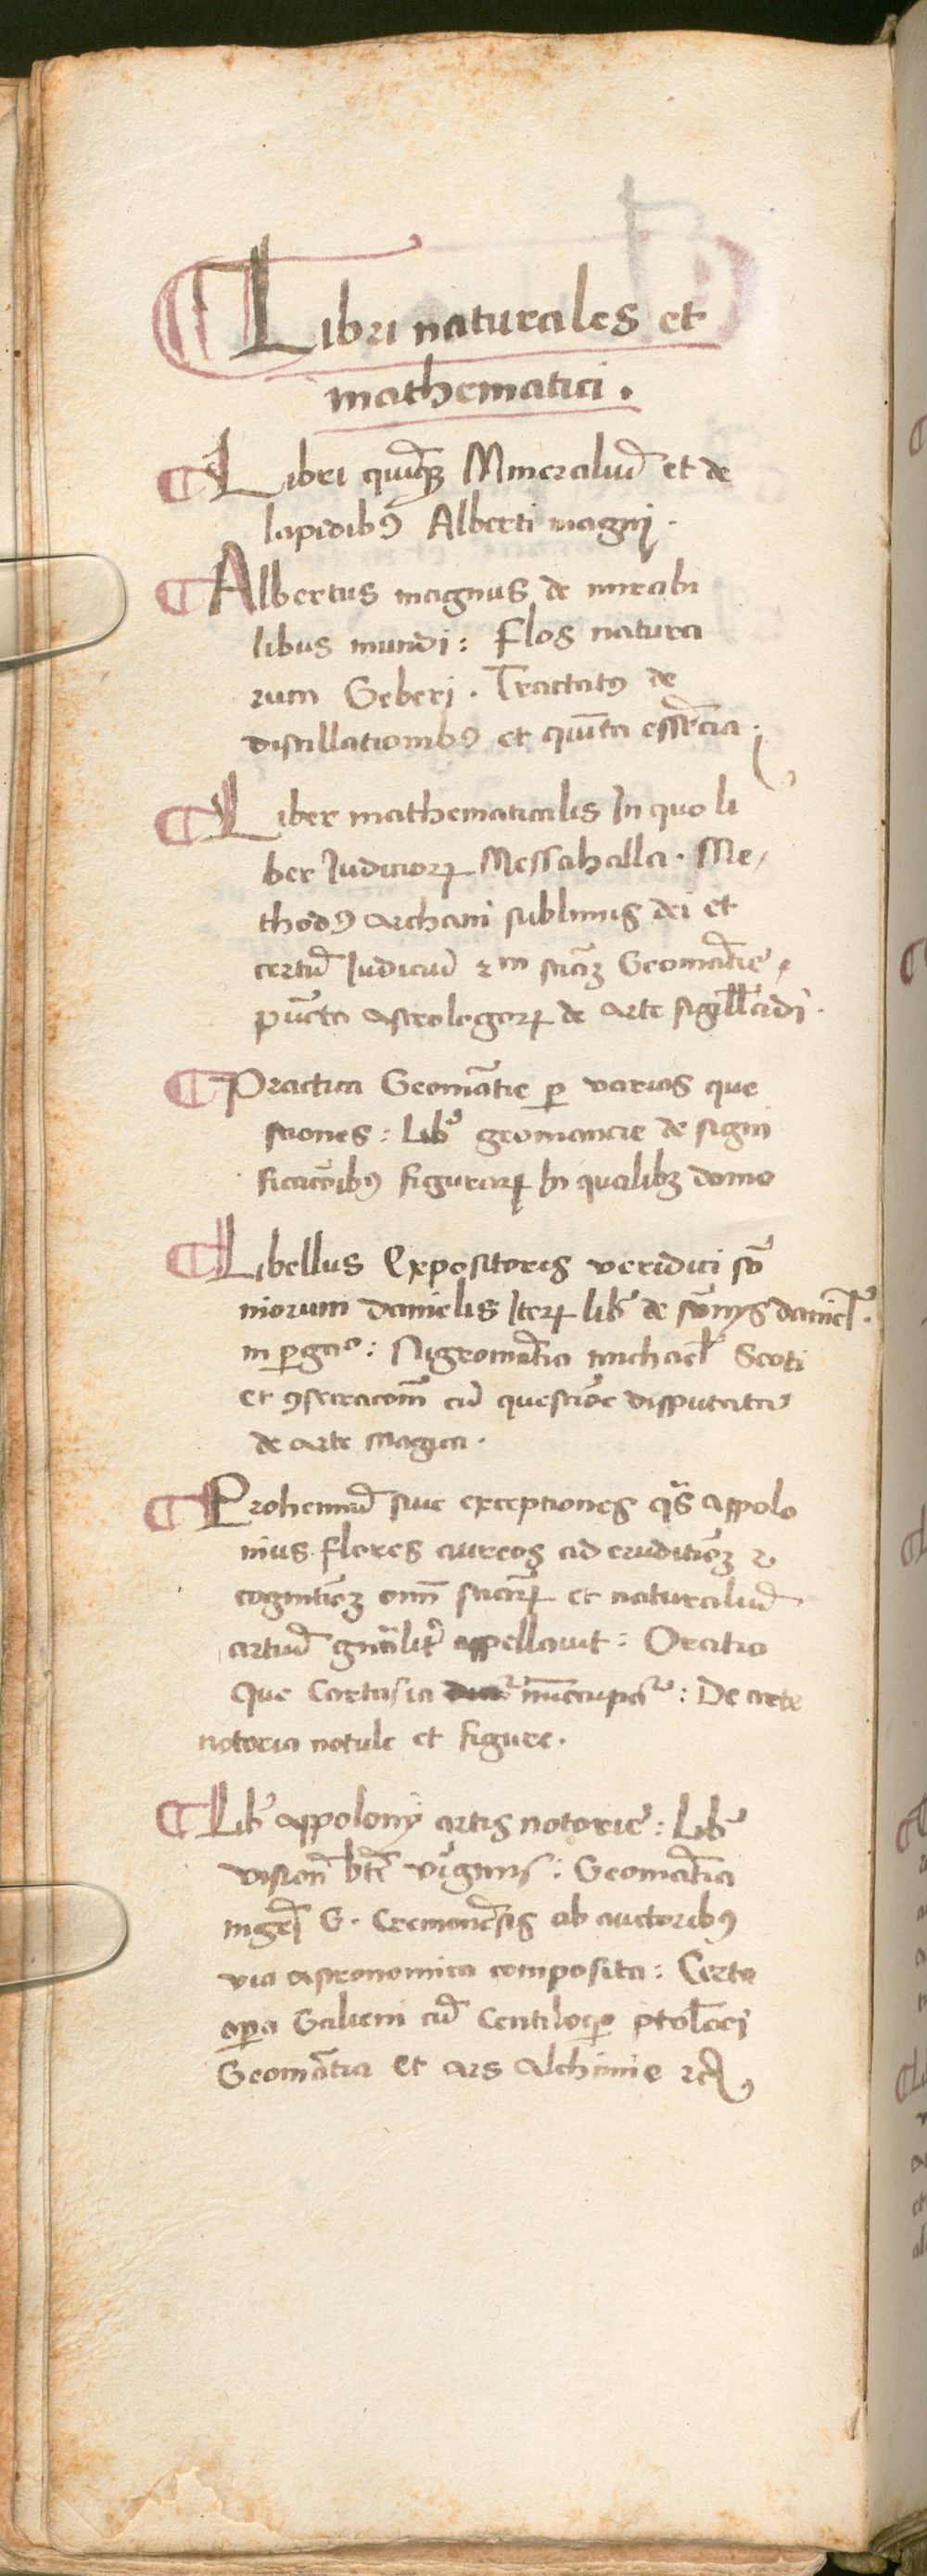 Libri naturales et
mathematici.
Libri quinqꝫ Mineraliū et de
lapidibꝰ Alberti magnj.
Albertus magnus de mirabi
libus mundi: Flos natura
rum Geberj. Tractatꝰ de
distillationibꝰ et quīta essēcia.
Liber mathematicalis In quo li
ber Iudicioꝝ Messahalla. Me
thodꝰ archani sublimis dei et
certū Iudiciū ẜm sciāꝫ Geomātie
pūcta astrologoꝝ de arte sigillādi.
Practica Geomātie ꝑ varias que
stiones: Libꝰ geomancie de signi
ficacōibꝰ figuraꝝ In qualibꝫ domo
Libellus Expositoris veridici sō
niorum danielis Iteꝝ lib̄ de sōnijs daniel̄.
in ꝑgaᵒ: Nigromātia michael̄ Scoti
et ꝯsecracōm̄ cū questiōe disputata
de arte magica.
Prohemiū siue exceptiones qᵃ̄s appolo
nius flores aureos ad eruditiōꝫ ⁊
cognitiōꝫ om̄ sciāꝝ et naturaliū
artiū gn̄alit̄ appellauit: Oratio
que Cartusia nūcupaᵗ: De arte
notoria notule et figure.
Lib̄ appolonij artis notorie: Lib̄
vision̄ bt̄e v̄ginis: Geomātia
mgr̄i G. Cremonēsis ab auctoribꝰ
via astronomica composita: Certa
oꝑa Galieni cū Centiloqⁱo ptol̄oei
Geomātia et Ars Alchimie ⁊c̄